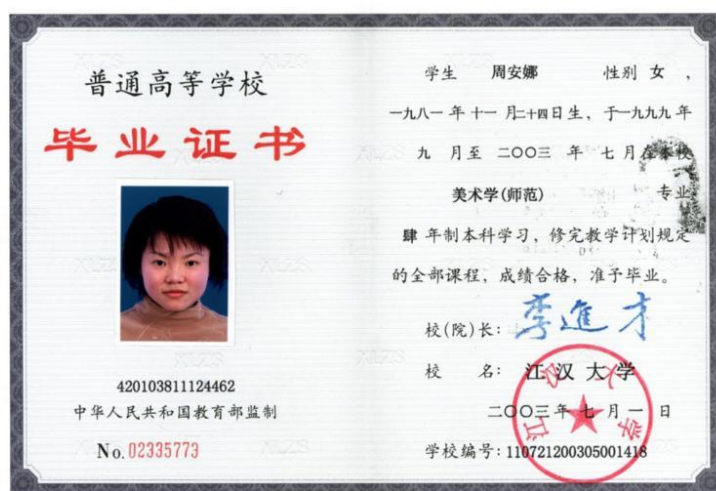 普通高等学校
毕业证书
420103811124462
中华人民共和国教育部监制
No.02335773
学生 周安娜 性别 女 ,
一九八一 年 十一 月二十四日生, 于一九九九 年
九 月至 二〇〇三 年 七 月在本校
美术学(师范) 专业
肆 年制本科学习, 修完教学计划规定
的全部课程, 成绩合格, 准予毕业。
校(院)长: 李進才
校 名: 江汉大学
二〇〇三年 七 月 一 日
江汉大学
学校编号: 110721200305001418